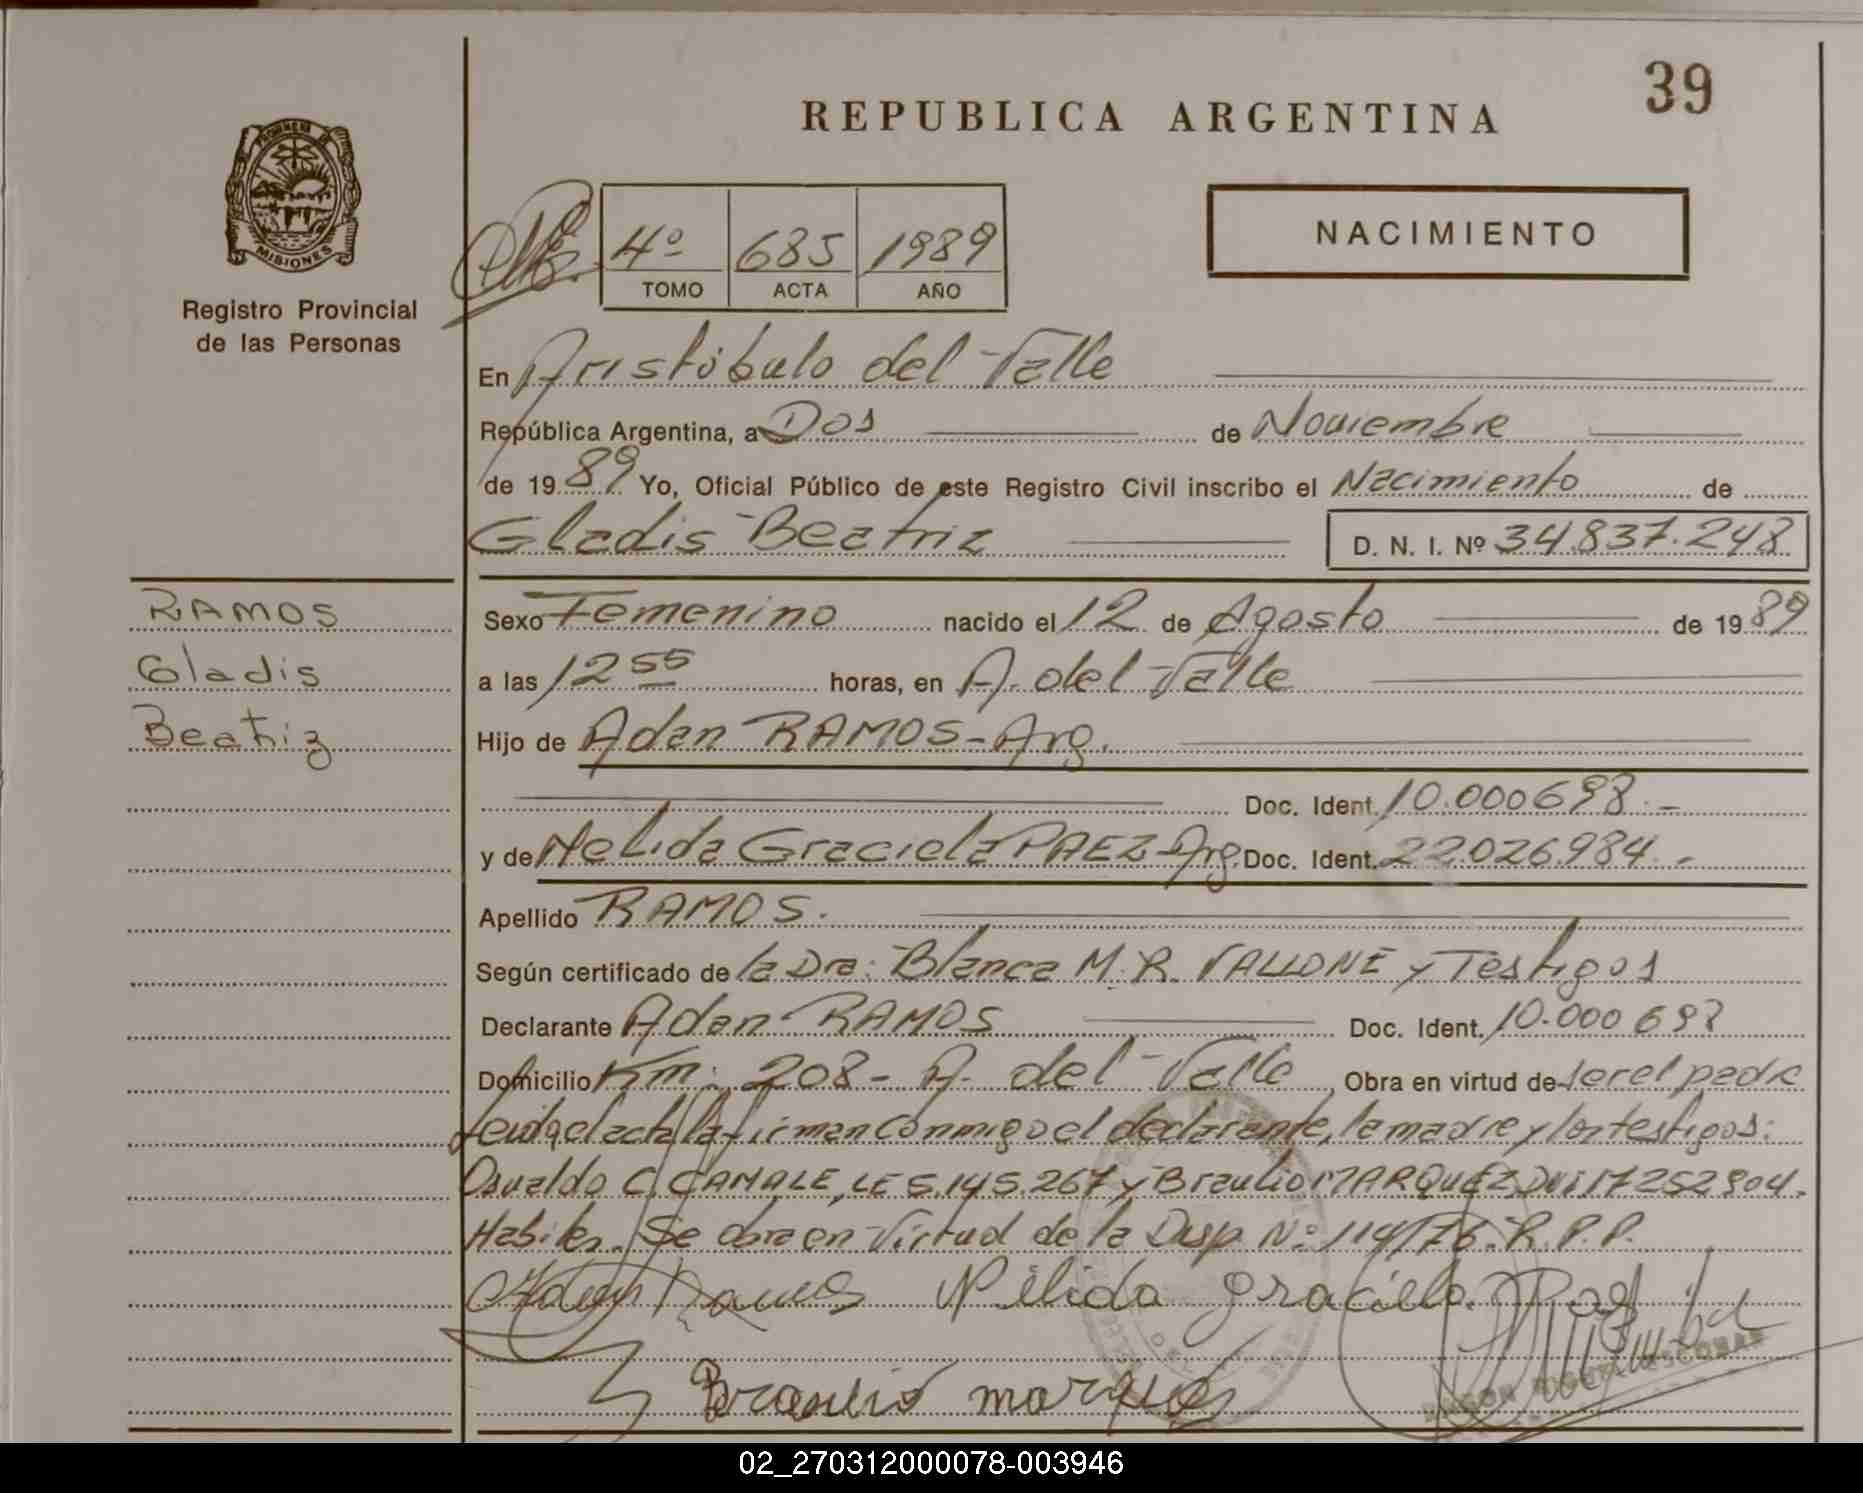 39
REPUBLICA ARGENTINA
PROVINCIA DE
MISIONES
Registro Provincial
de las Personas
4º 685 1989
TOMO ACTA AÑO
NACIMIENTO
En Aristóbulo del Valle
República Argentina, a Dos de Noviembre
de 1989 Yo, Oficial Público de este Registro Civil inscribo el Nacimiento de
Gladis Beatriz D. N. I. Nº 34.837.248
RAMOS
Gladis
Beatriz
Sexo Femenino nacido el 12 de Agosto de 1989
a las 12 55 horas, en A. del Valle
Hijo de Adan RAMOS - Arg.
Doc. Ident. 10.000698.-
y de Nelida Graciela PAEZ - Arg. Doc. Ident. 22.026.984.-
Apellido RAMOS.
Según certificado de la Dra: Blanca M. R. VALLONE y Testigos
Declarante Adan RAMOS Doc. Ident. 10.000 698
Domicilio Km: 208 - A. del Valle, Obra en virtud de ser el padre
Leida el acta la firman conmigo el declarante, la madre y los testigos:
Osvaldo C. CAMALE, LE 5.145.267 y Braulio MARQUEZ, DNI 17252904.
Habiles. Se obra en virtud de la Disp. Nº 114/76. R.P.P.
Adan Ramos Nélida graciela Paez
Braulio marquez
02_270312000078-003946